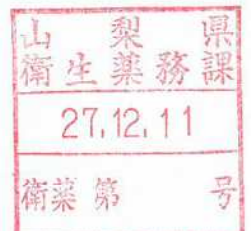 山梨県
衛生薬務課
27.12.11
衛薬第 号